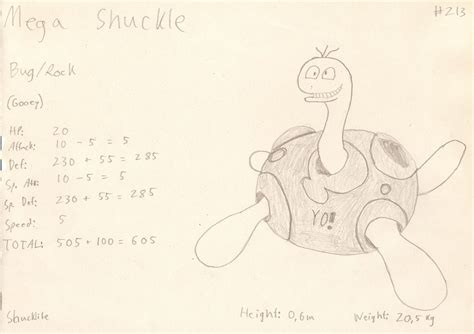 Mega Shuckle #213
Bug/Rock
(Gooey)
HP: 20
Attack: 10 - 5 = 5
Def: 230 + 55 = 285
Sp. Att: 10 - 5 = 5
Sp. Def: 230 + 55 = 285
Speed: 5
TOTAL: 505 + 100 = 605
YO!!
Shucklite Height: 0,6m Weight: 20,5 kg